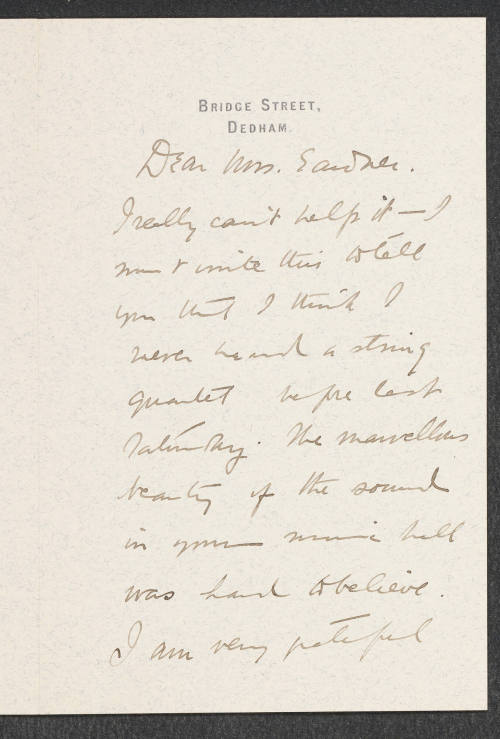 BRIDGE STREET,
DEDHAM.
Dear Mrs. Gardner.
I really can't help it — I
must write this to tell
you that I think I
never heard a string
quartet before last
Saturday. The marvellous
beauty of the sound
in your music hall
was hard to believe.
I am very grateful